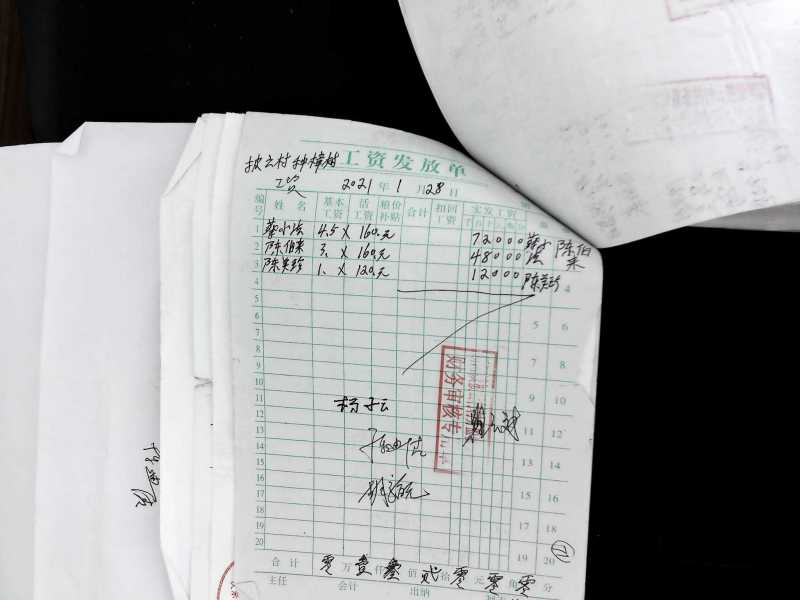 披云村种樟树 工资发放单
工资 2021年1月28日
编号 姓名 基本工资 活工资 粮价补贴 合计 扣回工资 实发工资
1 蔡小法 4.5 × 160元 72000 蔡小法
2 陈伯来 3. × 160元 48000 陈伯来
3 陈美珍 1. × 120元 12000 陈美珍
4 4
5 5 6
6
7 7 8
8
9 9 10
10
11 11 12
12
13 13 14
14
15 15 16
16
17 17 18
18
19 19 20
20
杨子云
财务审核专
合计 零万壹仟叁佰贰拾零元零角零分
主任 会计 出纳